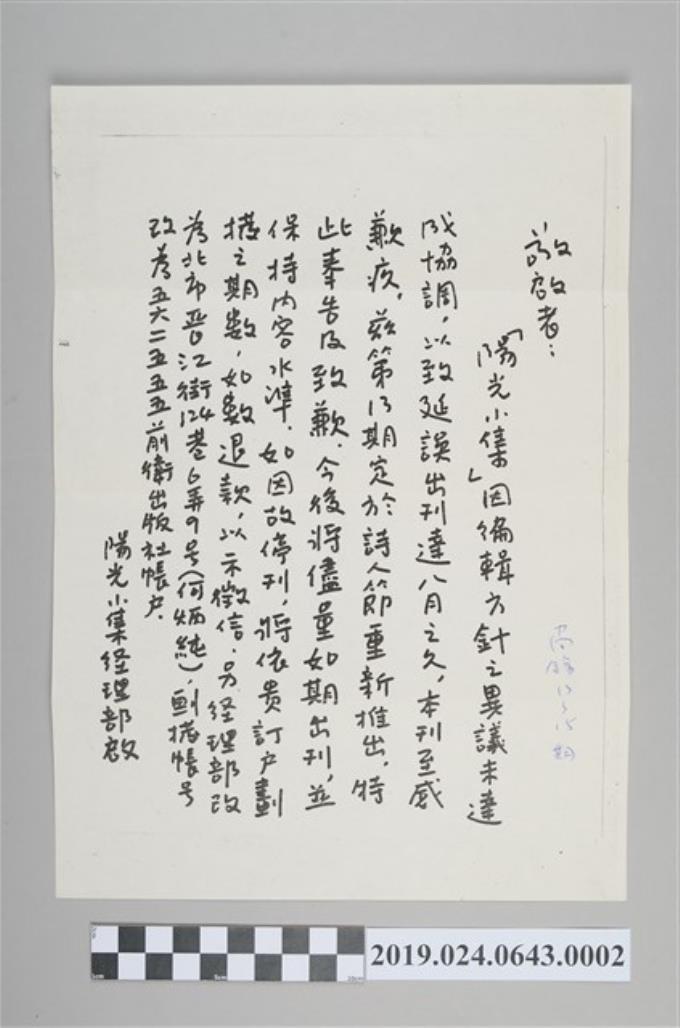 敬啟者：
「陽光小集」因編輯方針之異議未達
成協調，以致延誤出刊達八月之久，本刊至感
歉疚，茲第13期定於詩人節重新推出，特
此奉告及致歉。今後將儘量如期出刊，並
保持内容水準．如因故停刊，將依貴訂户劃
撥之期數，如數退款，以示徵信．另经理部改
為北市晋江街124巷6弄9号(何炳純)，劃撥帳号
改為五六二五五五前衛出版社帳户．
陽光小集经理部啟
13-15期
2019.024.0643.0002